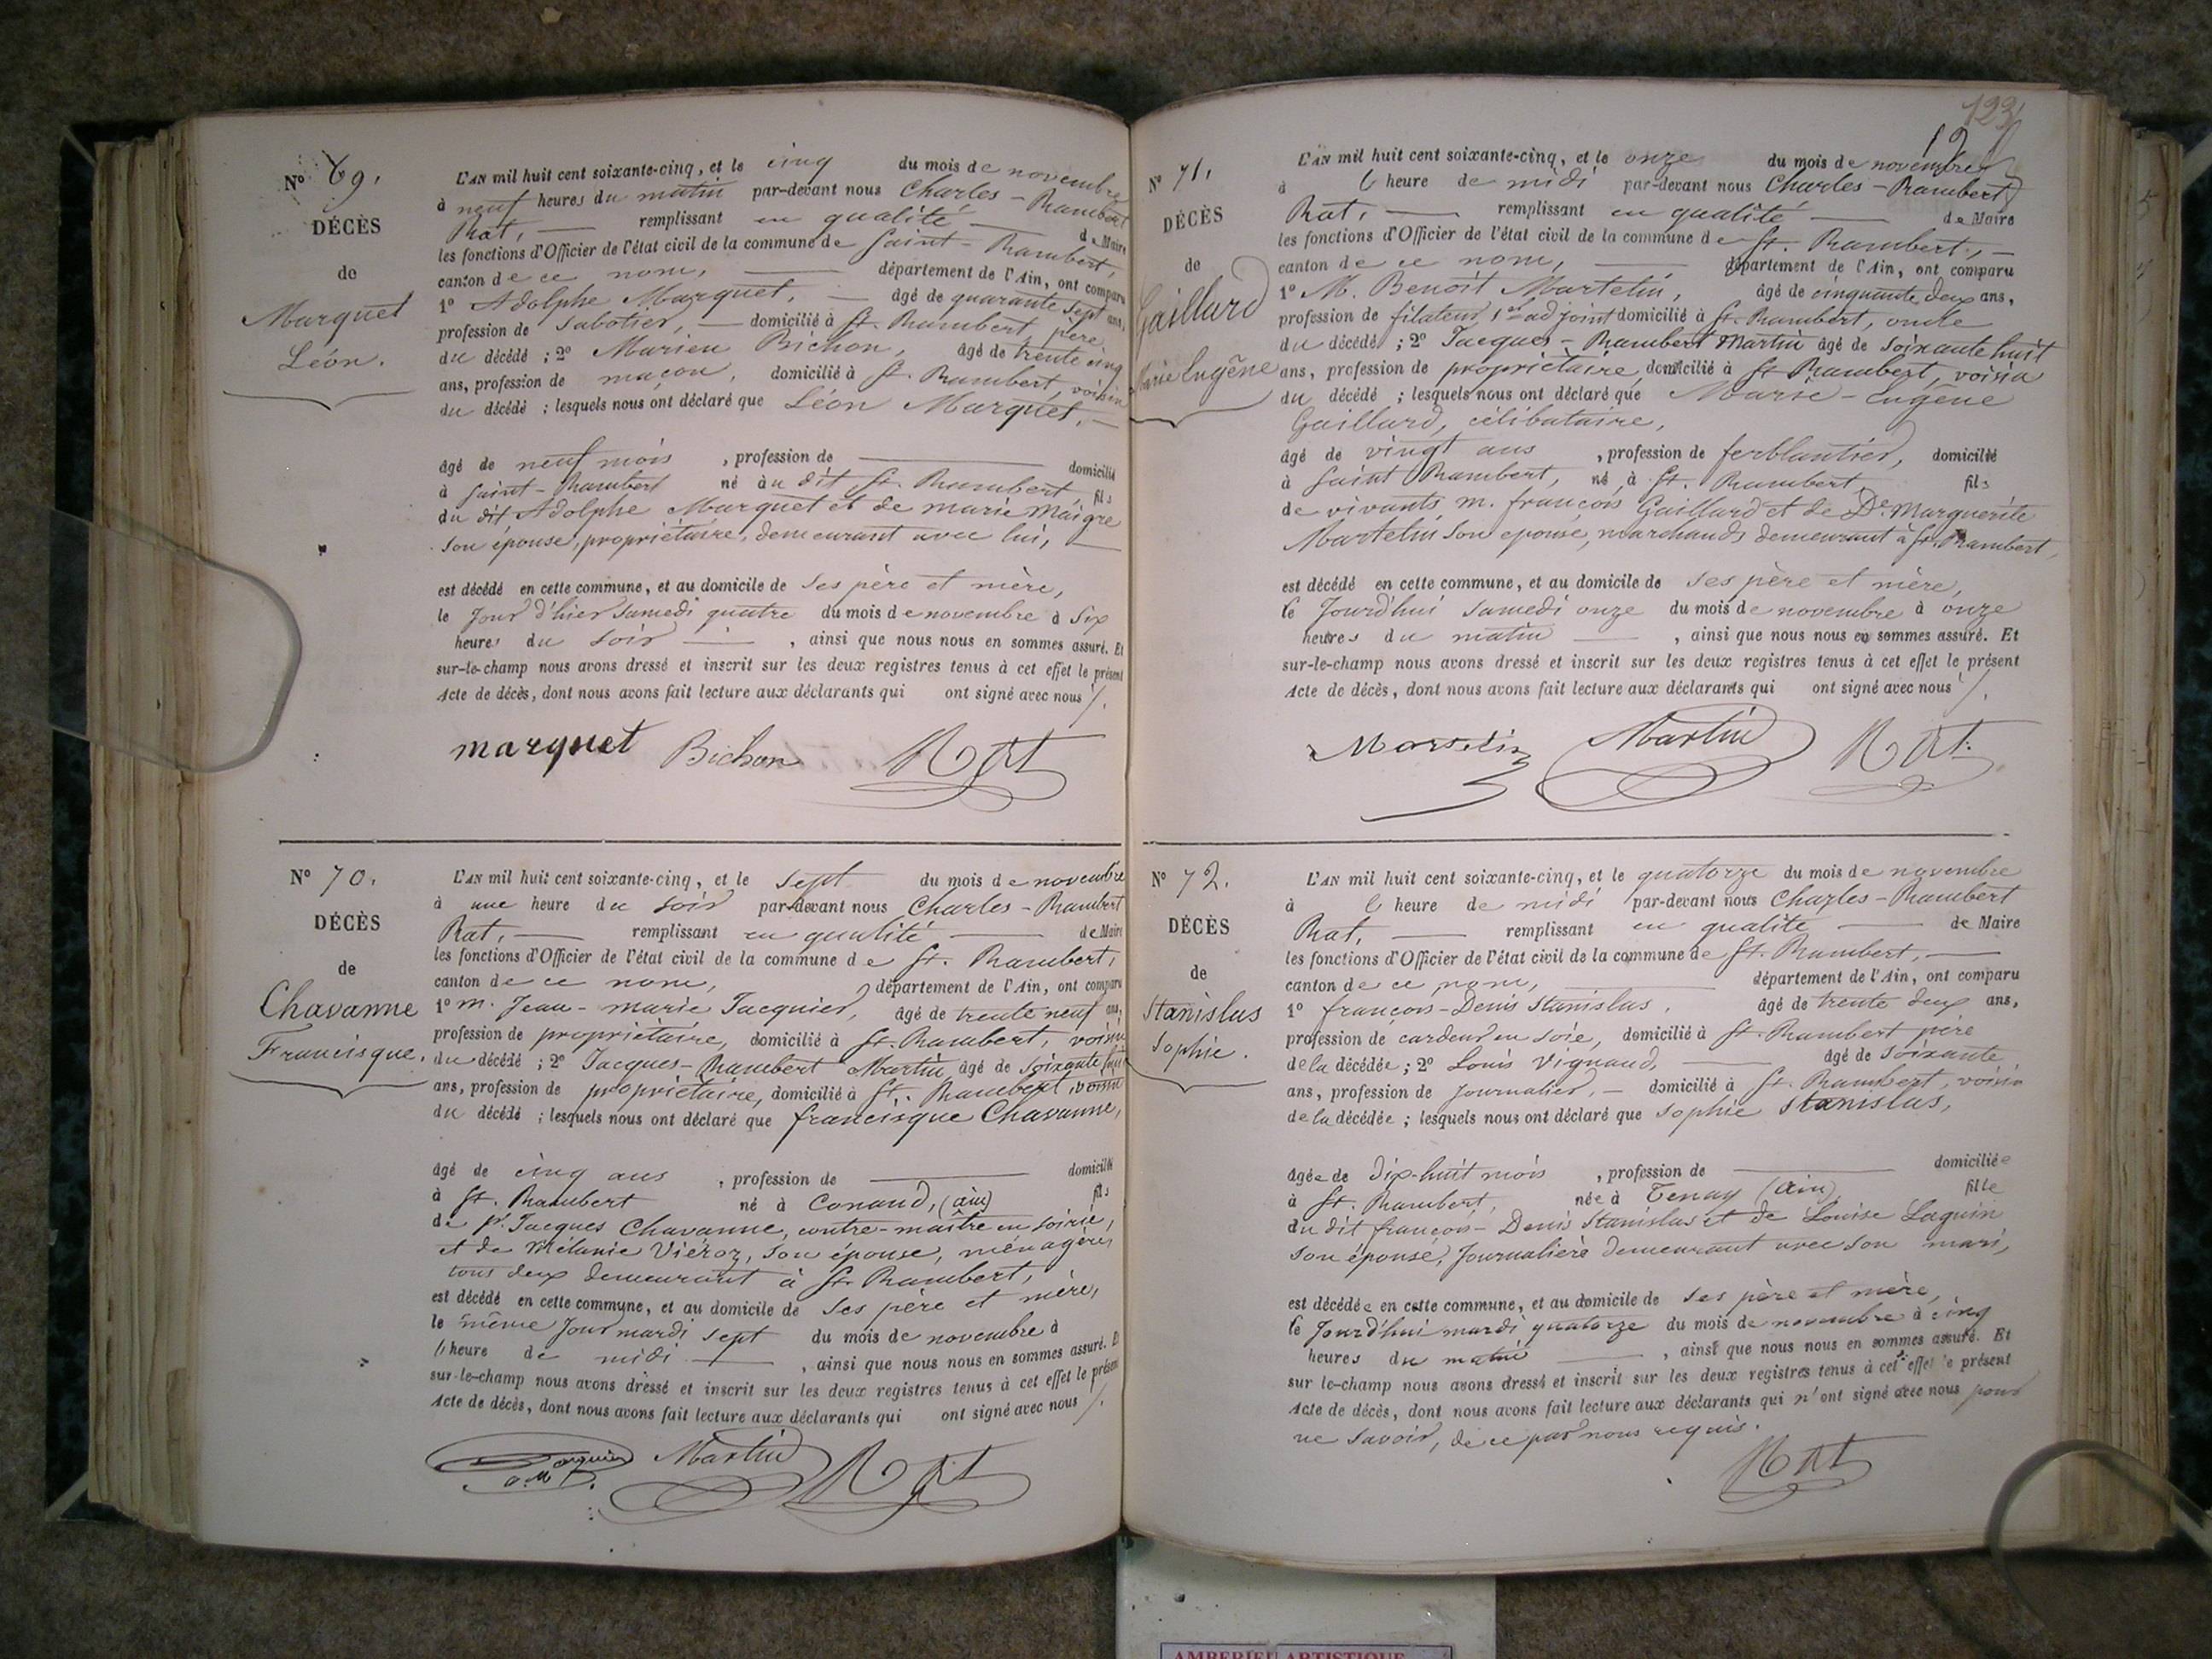 Nº 69.
DÉCÈS
de
Marquet
Léon.
L'AN mil huit cent soixante-cinq, et le cinq du mois de novembre
à neuf heures du matin par-devant nous Charles-Rambert
Rat, remplissant en qualité de Maire
les fonctions d'Officier de l'état civil de la commune de Saint-Rambert,
canton de ce nom, département de l'Ain, ont comparu
1º Adolphe Marquet, âgé de quarante sept ans,
profession de sabotier, domicilié à St. Rambert, père
du décédé ; 2º Marien Bichon, âgé de trente cinq
ans, profession de maçon, domicilié à St. Rambert, voisin
du décédé ; lesquels nous ont déclaré que Léon Marquet,
âgé de neuf mois , profession de domicilié
à Saint-Rambert né au dit St. Rambert, fils
du dit Adolphe Marquet et de marie Maigre
son épouse, propriétaire, demeurant avec lui,
est décédé en cette commune, et au domicile de ses père et mère,
le jour d'hier samedi quatre du mois de novembre à six
heures du soir , ainsi que nous nous en sommes assuré. Et
sur-le-champ nous avons dressé et inscrit sur les deux registres tenus à cet effet le présent
Acte de décès, dont nous avons fait lecture aux déclarants qui ont signé avec nous /.
marquet Bichon Rat
Nº 70.
DÉCÈS
de
Chavanne
Francisque.
L'AN mil huit cent soixante-cinq, et le sept du mois de novembre
à une heure du soir par-devant nous Charles-Rambert
Rat, remplissant en qualité de Maire
les fonctions d'Officier de l'état civil de la commune de St. Rambert,
canton de ce nom, département de l'Ain, ont comparu
1º m. Jean-marie Jacquier, âgé de trente neuf ans,
profession de propriétaire, domicilié à St. Rambert, voisin
du décédé ; 2º Jacques-Rambert Martin âgé de soixante huit
ans, profession de propriétaire, domicilié à St. Rambert, voisin
du décédé ; lesquels nous ont déclaré que francisque Chavanne,
âgé de cinq ans , profession de domicilié
à St. Rambert né à Conand, (ain) fils
de Jacques Chavanne, contre-maître en soirie,
et de Mélanie Viéroz, son épouse, ménagère,
tous deux demeurant à St. Rambert,
est décédé en cette commune, et au domicile de ses père et mère,
le même jour mardi sept du mois de novembre à
l'heure de midi , ainsi que nous nous en sommes assuré. Et
sur-le-champ nous avons dressé et inscrit sur les deux registres tenus à cet effet le présent
Acte de décès, dont nous avons fait lecture aux déclarants qui ont signé avec nous /.
Martin Rat
123
Nº 71.
DÉCÈS
de
Gaillard
Marie Eugène
L'AN mil huit cent soixante-cinq, et le onze du mois de novembre
à l'heure de midi par-devant nous Charles-Rambert
Rat, remplissant en qualité de Maire
les fonctions d'Officier de l'état civil de la commune de St. Rambert,
canton de ce nom, département de l'Ain, ont comparu
1º M. Benoit Martelin, âgé de cinquante deux ans,
profession de filateur, 1er adjoint domicilié à St. Rambert, oncle
du décédé ; 2º Jacques-Rambert Martin âgé de soixante huit
ans, profession de propriétaire, domicilié à St Rambert, voisin
du décédé ; lesquels nous ont déclaré que Marie-Eugène
Gaillard, célibataire,
âgé de vingt ans , profession de ferblantier, domicilié
à Saint Rambert, né à St. Rambert, fils
de vivants m. françois Gaillard et de De. Marguerite
Martelin son épouse, marchands demeurant à St. Rambert,
est décédé en cette commune, et au domicile de ses père et mère,
le jourd'hui samedi onze du mois de novembre à onze
heures du matin , ainsi que nous nous en sommes assuré. Et
sur-le-champ nous avons dressé et inscrit sur les deux registres tenus à cet effet le présent
Acte de décès, dont nous avons fait lecture aux déclarants qui ont signé avec nous /.
Martelin Martin Rat
Nº 72.
DÉCÈS
de
Stanislas
Sophie.
L'AN mil huit cent soixante-cinq, et le quatorze du mois de novembre
à l'heure de midi par-devant nous Charles-Rambert
Rat, remplissant en qualité de Maire
les fonctions d'Officier de l'état civil de la commune de St. Rambert,
canton de ce nom, département de l'Ain, ont comparu
1º françois-Denis Stanislas, âgé de trente deux ans,
profession de cardeur en soie, domicilié à St. Rambert père
de la décédée ; 2º Louis Vignaud, âgé de soixante
ans, profession de journalier, domicilié à St. Rambert, voisin
de la décédée ; lesquels nous ont déclaré que Sophie Stanislas,
âgée de dix-huit mois , profession de domiciliée
à St. Rambert, née à Tenay (ain) fille
du dit françois-Denis Stanislas et de Louise Laguin
son épouse, journalière demeurant avec son mari,
est décédée en cette commune, et au domicile de ses père et mère,
le jourd'hui mardi quatorze du mois de novembre à cinq
heures du matin , ainsi que nous nous en sommes assuré. Et
sur le-champ nous avons dressé et inscrit sur les deux registres tenus à cet effet le présent
Acte de décès, dont nous avons fait lecture aux déclarants qui n'ont signé avec nous pour
ne savoir, de ce par nous requis.
Rat
AMBERIEU ARTISTIQUE